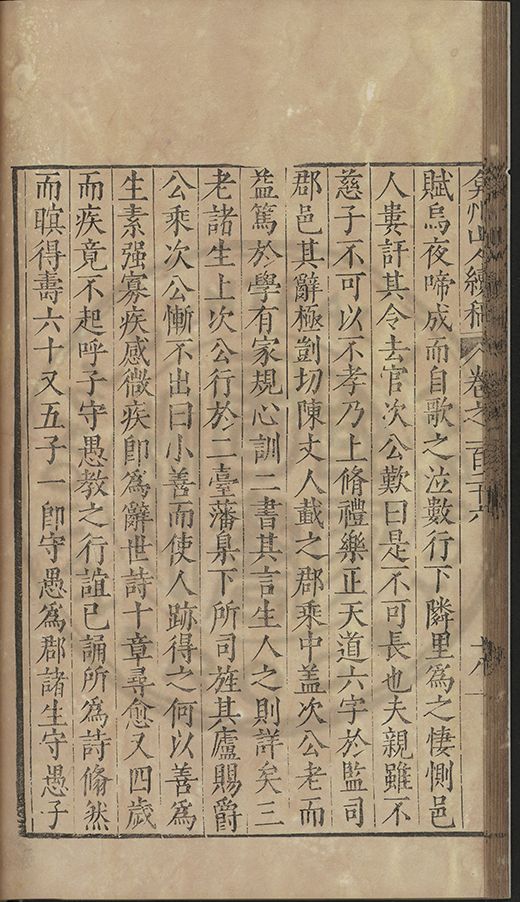 弇州山人續稿 卷之一百三十六 十八
賦烏夜啼成而自歌之泣數行下隣里為之悽惻邑
人婁訐其令去官次公歎曰是不可長也夫親雖不
慈子不可以不孝乃上脩禮樂正天道六字於監司
郡邑其辭極剴切陳丈人載之郡乘中蓋次公老而
益篤於學有家規心訓二書其言生人之則詳矣三
老諸生上次公行於二臺藩臬下所司旌其廬賜爵
公乘次公慚不出曰小善而使人跡得之何以善為
生素强寡疾感微疾即為辭世詩十章尋愈又四歲
而疾竟不起呼子守愚教之行誼已誦所為詩翛然
而瞑得壽六十又五子一即守愚為郡諸生守愚子